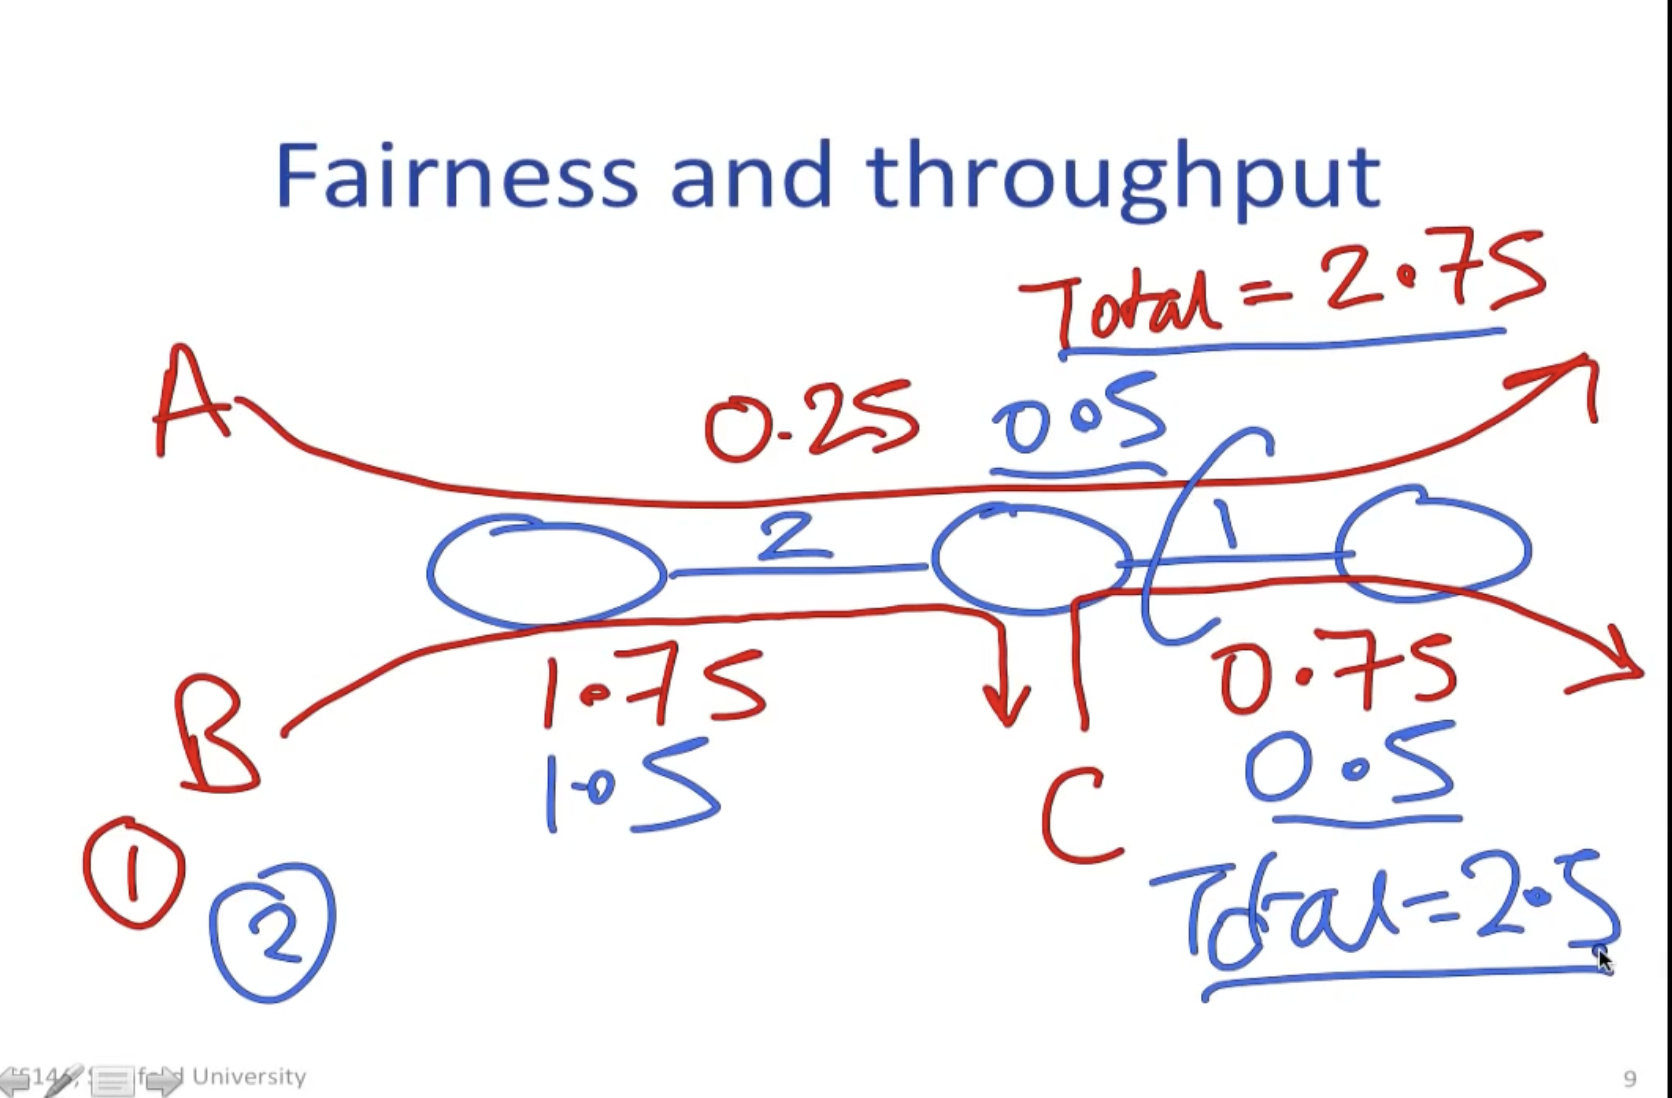 Fairness and throughput
Total = 2.75
A
0.25
0.5
2
1
1.75
0.75
B
1.5
0.5
C
1
2
Total = 2.5
University
9